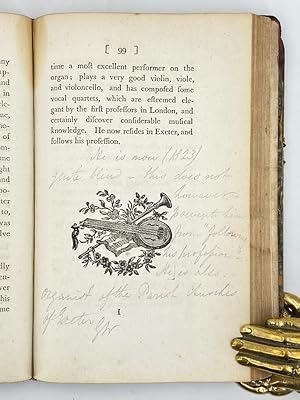 [ 99 ]
time a moſt excellent performer on the
organ; plays a very good violin, viole,
and violoncello, and has compoſed ſome
vocal quartets, which are eſteemed ele-
gant by the firſt profeſſors in London, and
certainly diſcover conſiderable muſical
knowledge. He now reſides in Exeter, and
follows his profeſſion.
He is now (1823)
quite blind - this does not
however
prevent him
from "following
his profession"
He is also
organist of the Parish Churches
of Exeter
I